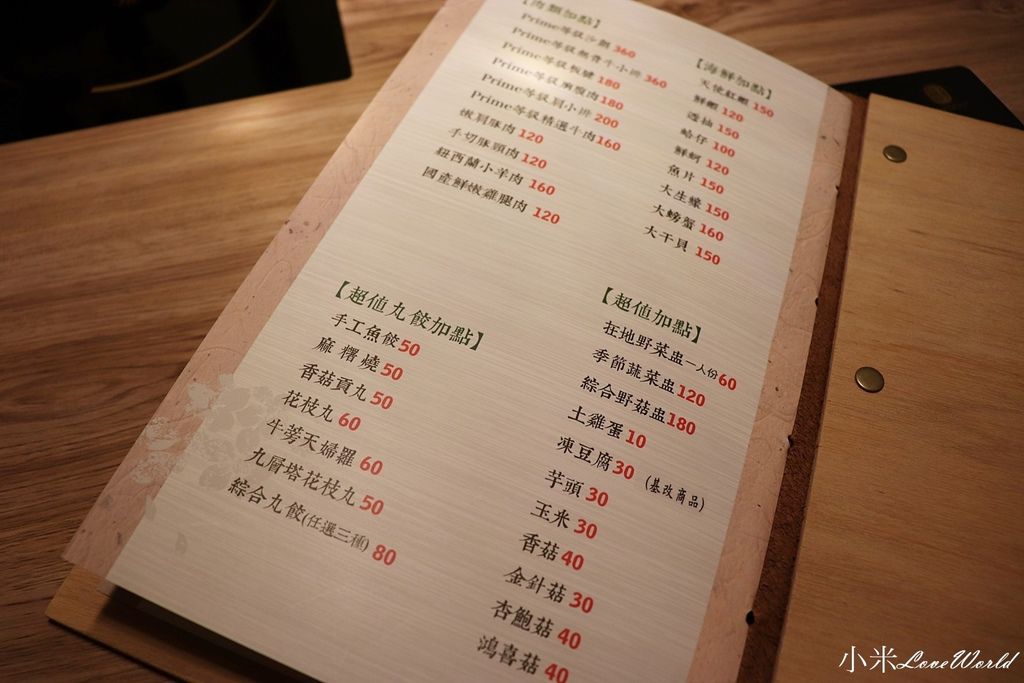 【肉類加點】
Prime等級沙朗 360
Prime等級無骨牛小排 360
Prime等級板腱 180
Prime等級胸腹肉 180
Prime等級肩小排 200
Prime等級精選牛肉 160
嫩肩豚肉 120
手切豚頸肉 120
紐西蘭小羊肉 160
國產鮮嫩雞腿肉 120
【海鮮加點】
天使紅蝦 150
鮮蝦 120
透抽 150
蛤仔 100
鮮蚵 120
魚片 150
大生蠔 150
大螃蟹 160
大干貝 150
【超值丸餃加點】
手工魚餃 50
麻糬燒 50
香菇貢丸 50
花枝丸 60
牛蒡天婦羅 60
九層塔花枝丸 50
綜合丸餃(任選三種) 80
【超值加點】
在地野菜盅一人份 60
季節蔬菜盅 120
綜合野菇盅 180
土雞蛋 10
凍豆腐 30 (基改商品)
芋頭 30
玉米 30
香菇 40
金針菇 30
杏鮑菇 40
鴻喜菇 40
小米LoveWorld